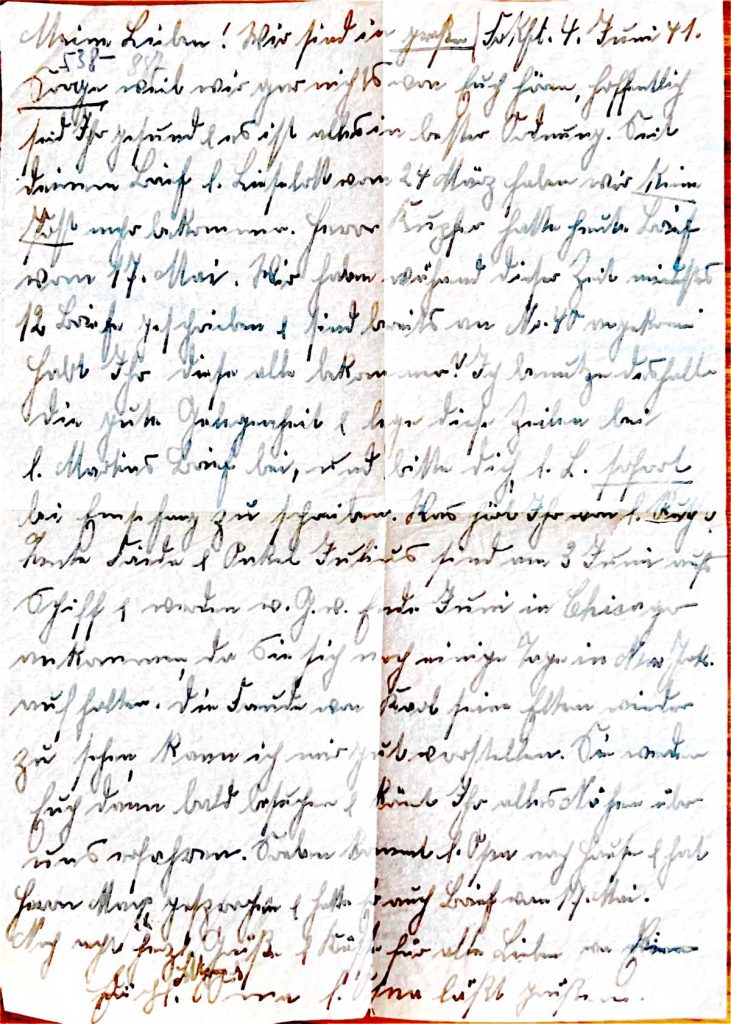 Meine Lieben! Wir sind in großer Frkft. 4. Juni 41.
538- 857
Sorge weil wir gar nichts von Euch hören, hoffentlich
seid Ihr gesund & es ist alles in bester Ordnung. Seit
deinem Brief l. Lieselott vom 24 März haben wir keine
Post mehr bekommen. Herr Kupfer hatte heute Brief
vom 17. Mai. Wir haben während dieser Zeit mindestens
12 Briefe geschrieben & sind bereits an No. 40 angekom̄en
habt Ihr diese alle bekommen? Ich benutze deshalb
die gute Gelegenheit & lege diese Zeilen bei
l. Martins Brief bei, und bitte dich, l. L. sofort
bei Empfang zu schreiben. Was hört Ihr von l.
Tante & Onkel Julius sind am 3 Juni aufs
Schiff & werden w. G. w. Ende Juni in Chicago
ankommen, da Sie sich noch einige Tage in New York
aufhalten. Die Freude von seine Eltern wieder
zu sehen kann ich mir gut vorstellen. Sie werden
Euch dann bald besuchen & könnt Ihr alles Nähere über
uns erfahren. Soeben kommt l. Opa nach Hause & hat
Herrn gesprochen & hatte auch Brief vom 17. Mai.
Noch recht herzl. Grüße & Küsse für alle Lieben von
Oma l. läßt grüßen.